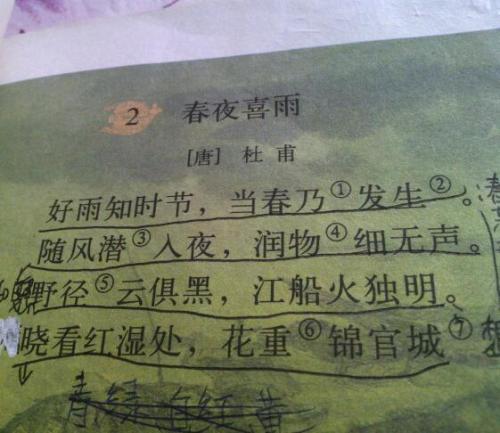 2 春夜喜雨
[唐] 杜甫
好雨知时节，当春乃①发生②。
随风潜③入夜，润物④细无声。
野径⑤云俱黑，江船火独明。
晓看红湿处，花重⑥锦官城⑦
青绿 黄